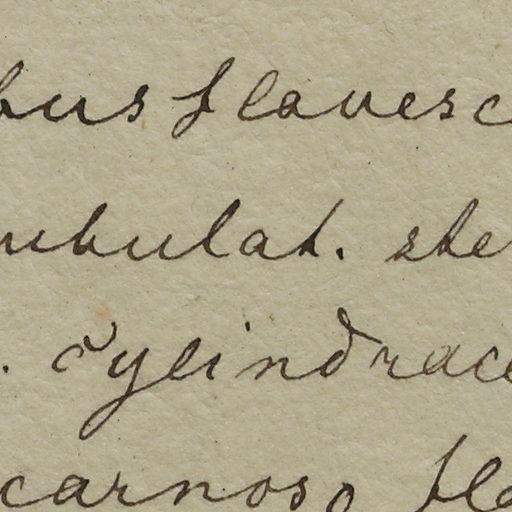 bus flavesc
ubulat. ste
. Cylindrace
carnoso fla